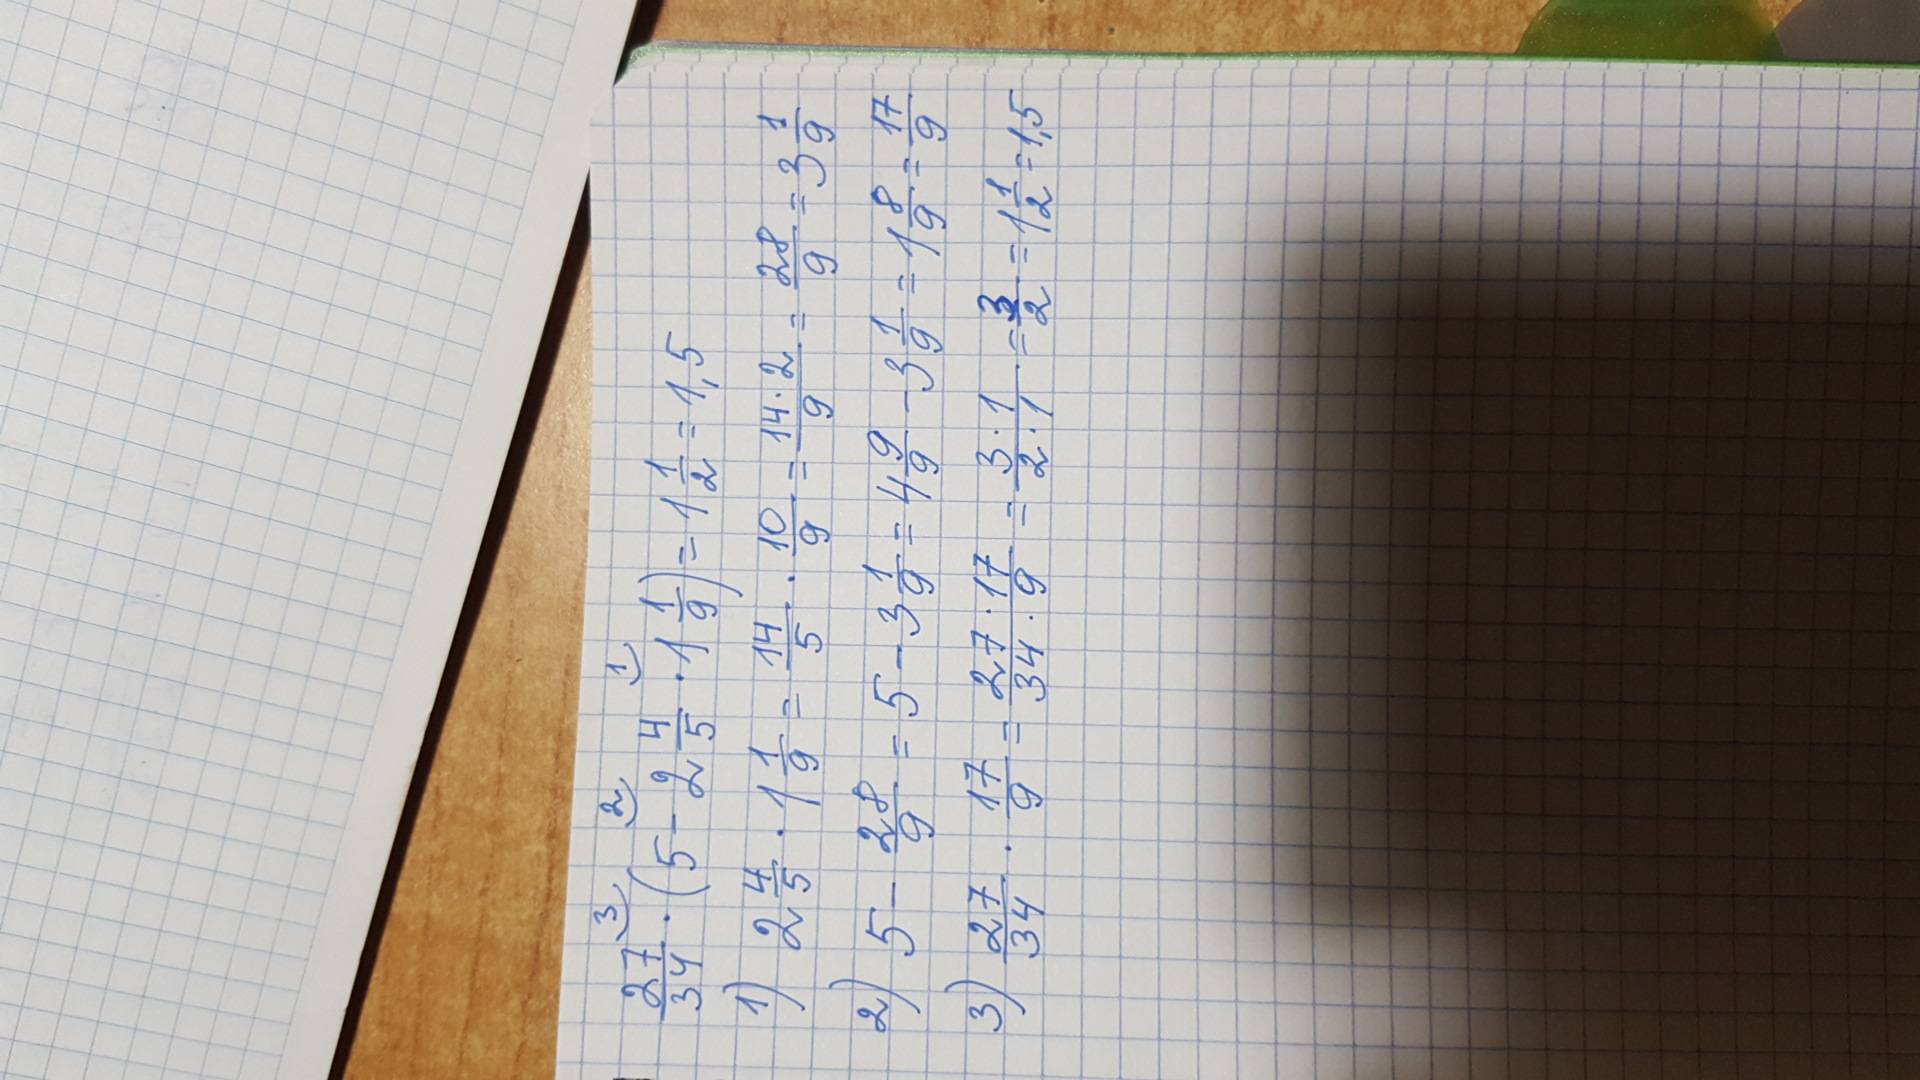 3) 2) 1)
27/34 · (5 - 2 4/5 · 1 1/9) = 1 1/2 = 1,5
1) 2 4/5 · 1 1/9 = 14/5 · 10/9 = 14·2/9 = 28/9 = 3 1/9
2) 5 - 28/9 = 5 - 3 1/9 = 4 9/9 - 3 1/9 = 1 8/9 = 17/9
3) 27/34 · 17/9 = 27·17/34·9 = 3·1/2·1 = 3/2 = 1 1/2 = 1,5